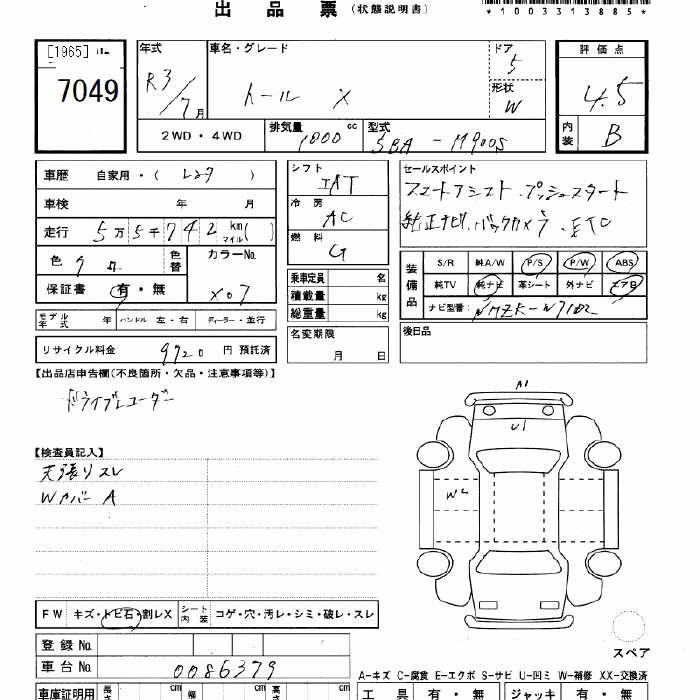 出品票 (状態説明書)
*1003313885*
[1965]
7049
年式 R3/7月
車名・グレード トール X
ドア 5
形状 W
評価点 4.5
内装 B
2WD・4WD
排気量 1000 cc
型式 5BA-M900S
車歴 自家用・( レンタ )
車検 年 月
走行 5万5千742km マイル ( )
色 クロ 色替
カラーNo. X07
保証書 有・無
モデル年式 年 ハンドル 左・右 ディーラー・並行
リサイクル料金 9720 円 預託済
シフト IAT
冷房 AC
燃料 G
乗車定員 名
積載量 kg
総重量 kg
名変期限
月 日
セールスポイント
スマートアシスト.プッシュスタート
純正ナビ.バックカメラ.ETC
装備品
S/R 純A/W P/S P/W ABS
純TV 純ナビ 革シート 外ナビ エアB
ナビ型番: NMZK-W71D2
後日品
【出品店申告欄(不良箇所・欠品・注意事項等)】
ドライブレコーダー
【検査員記入】
天張りスレ
Wカバー A
A1
U1
FW キズ・トビ石・割レX
シート内装 コゲ・穴・汚レ・シミ・破レ・スレ
登録No.
車台No. 0086379
スペア
A-キズ C-腐食 E-エクボ S-サビ U-凹ミ W-補修 XX-交換済
車庫証明用 長さ cm 幅 cm 高さ cm
工具 有・無 ジャッキ 有・無